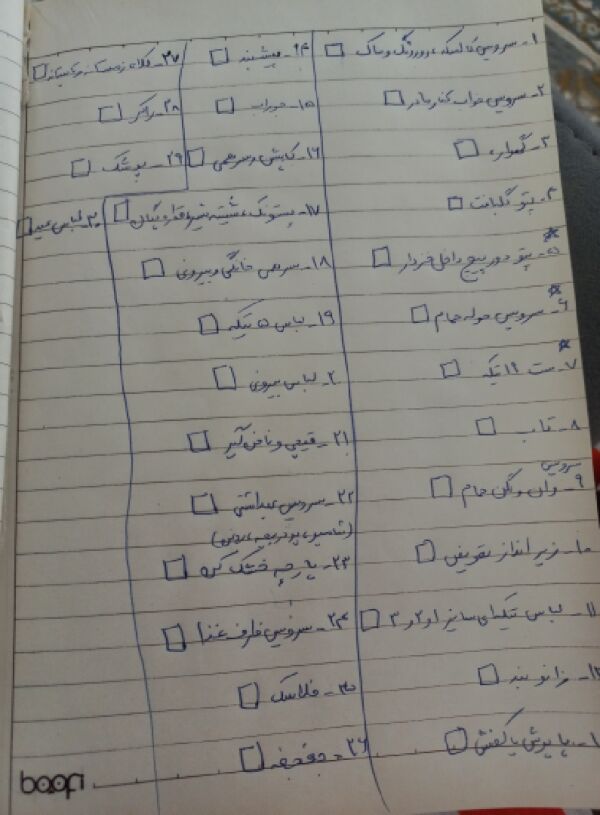 ۱- سرویس کالسکه، دوردنگ و ساک
۲- سرویس خواب کنار مادر
۳- گهواره
۴- پتو گلبافت
۵- پتو دورپیچ داخل خزدار
۶- سرویس حوله حمام
۷- ست ۱۹ تیکه
۸- قاب
سرویس
۹- وان و لگن حمام
۱۰- زیر انداز تعویض
۱۱- لباس تیکه‌ای سایز ۱ و ۲ و ۳
۱۲- زانو بند
۱- پاپوش یا کفش
۱۴- پیشبند
۱۵- جوراب
۱۶- کاپشن و سرهمی
۱۷- پستونک، شیشه شیر، قطره چکان
۱۸- سرهمی خانگی و بیرونی
۱۹- لباس ۵ تیکه
۲۰- لباس بیرونی
۲۱- قیچی و ناخن گیر
۲۲- سرویس بهداشتی
(شامپو، پودر بچه، روغن)
۲۳- پارچه خشک کن
۲۴- سرویس ظرف غذا
۲۵- فلاسک
۲۶- جغجغه
۲۷- کلاه زمستانه و تابستانه
۲۸- راکر
۲۹- پوشک
۳۰- لباس عید
baafi